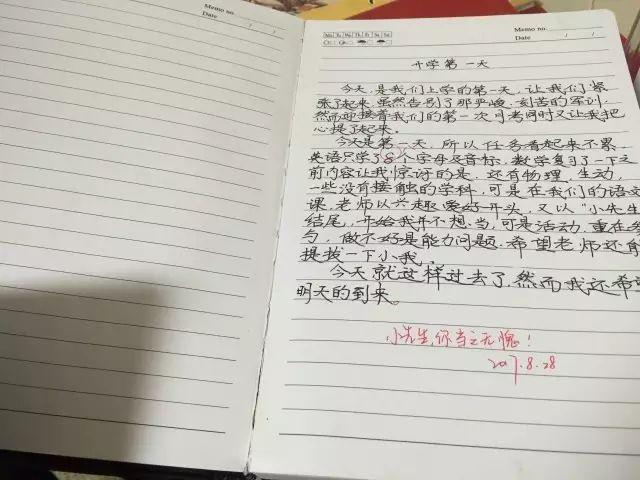 Memo no.
Date / /
Memo no.
Date / /
Mo Tu We Th Fr Sa Su
开学第一天
今天,是我们上学的第一天,让我们紧
张了起来,虽然告别了那严峻、刻苦的军训,
然而迎接着我们的第一次月考同时又让我把
心提了起来。
今天是第一天,所以任务看起来不累,
英语只学了8个字母及音标,数学复习了一下之
前内容让我惊讶的是,还有物理、生动,
一些没有接触的学科,可是在我们的语文
课,老师以兴趣爱好开头,又以“小先生
结尾,开始我并不想当,可是活动,重在参
与,做不好是能力问题,希望老师还能
提拔一下小我。
今天就这样过去了,然而我还希
明天的到来。
小先生,你当之无愧!
2017.8.28